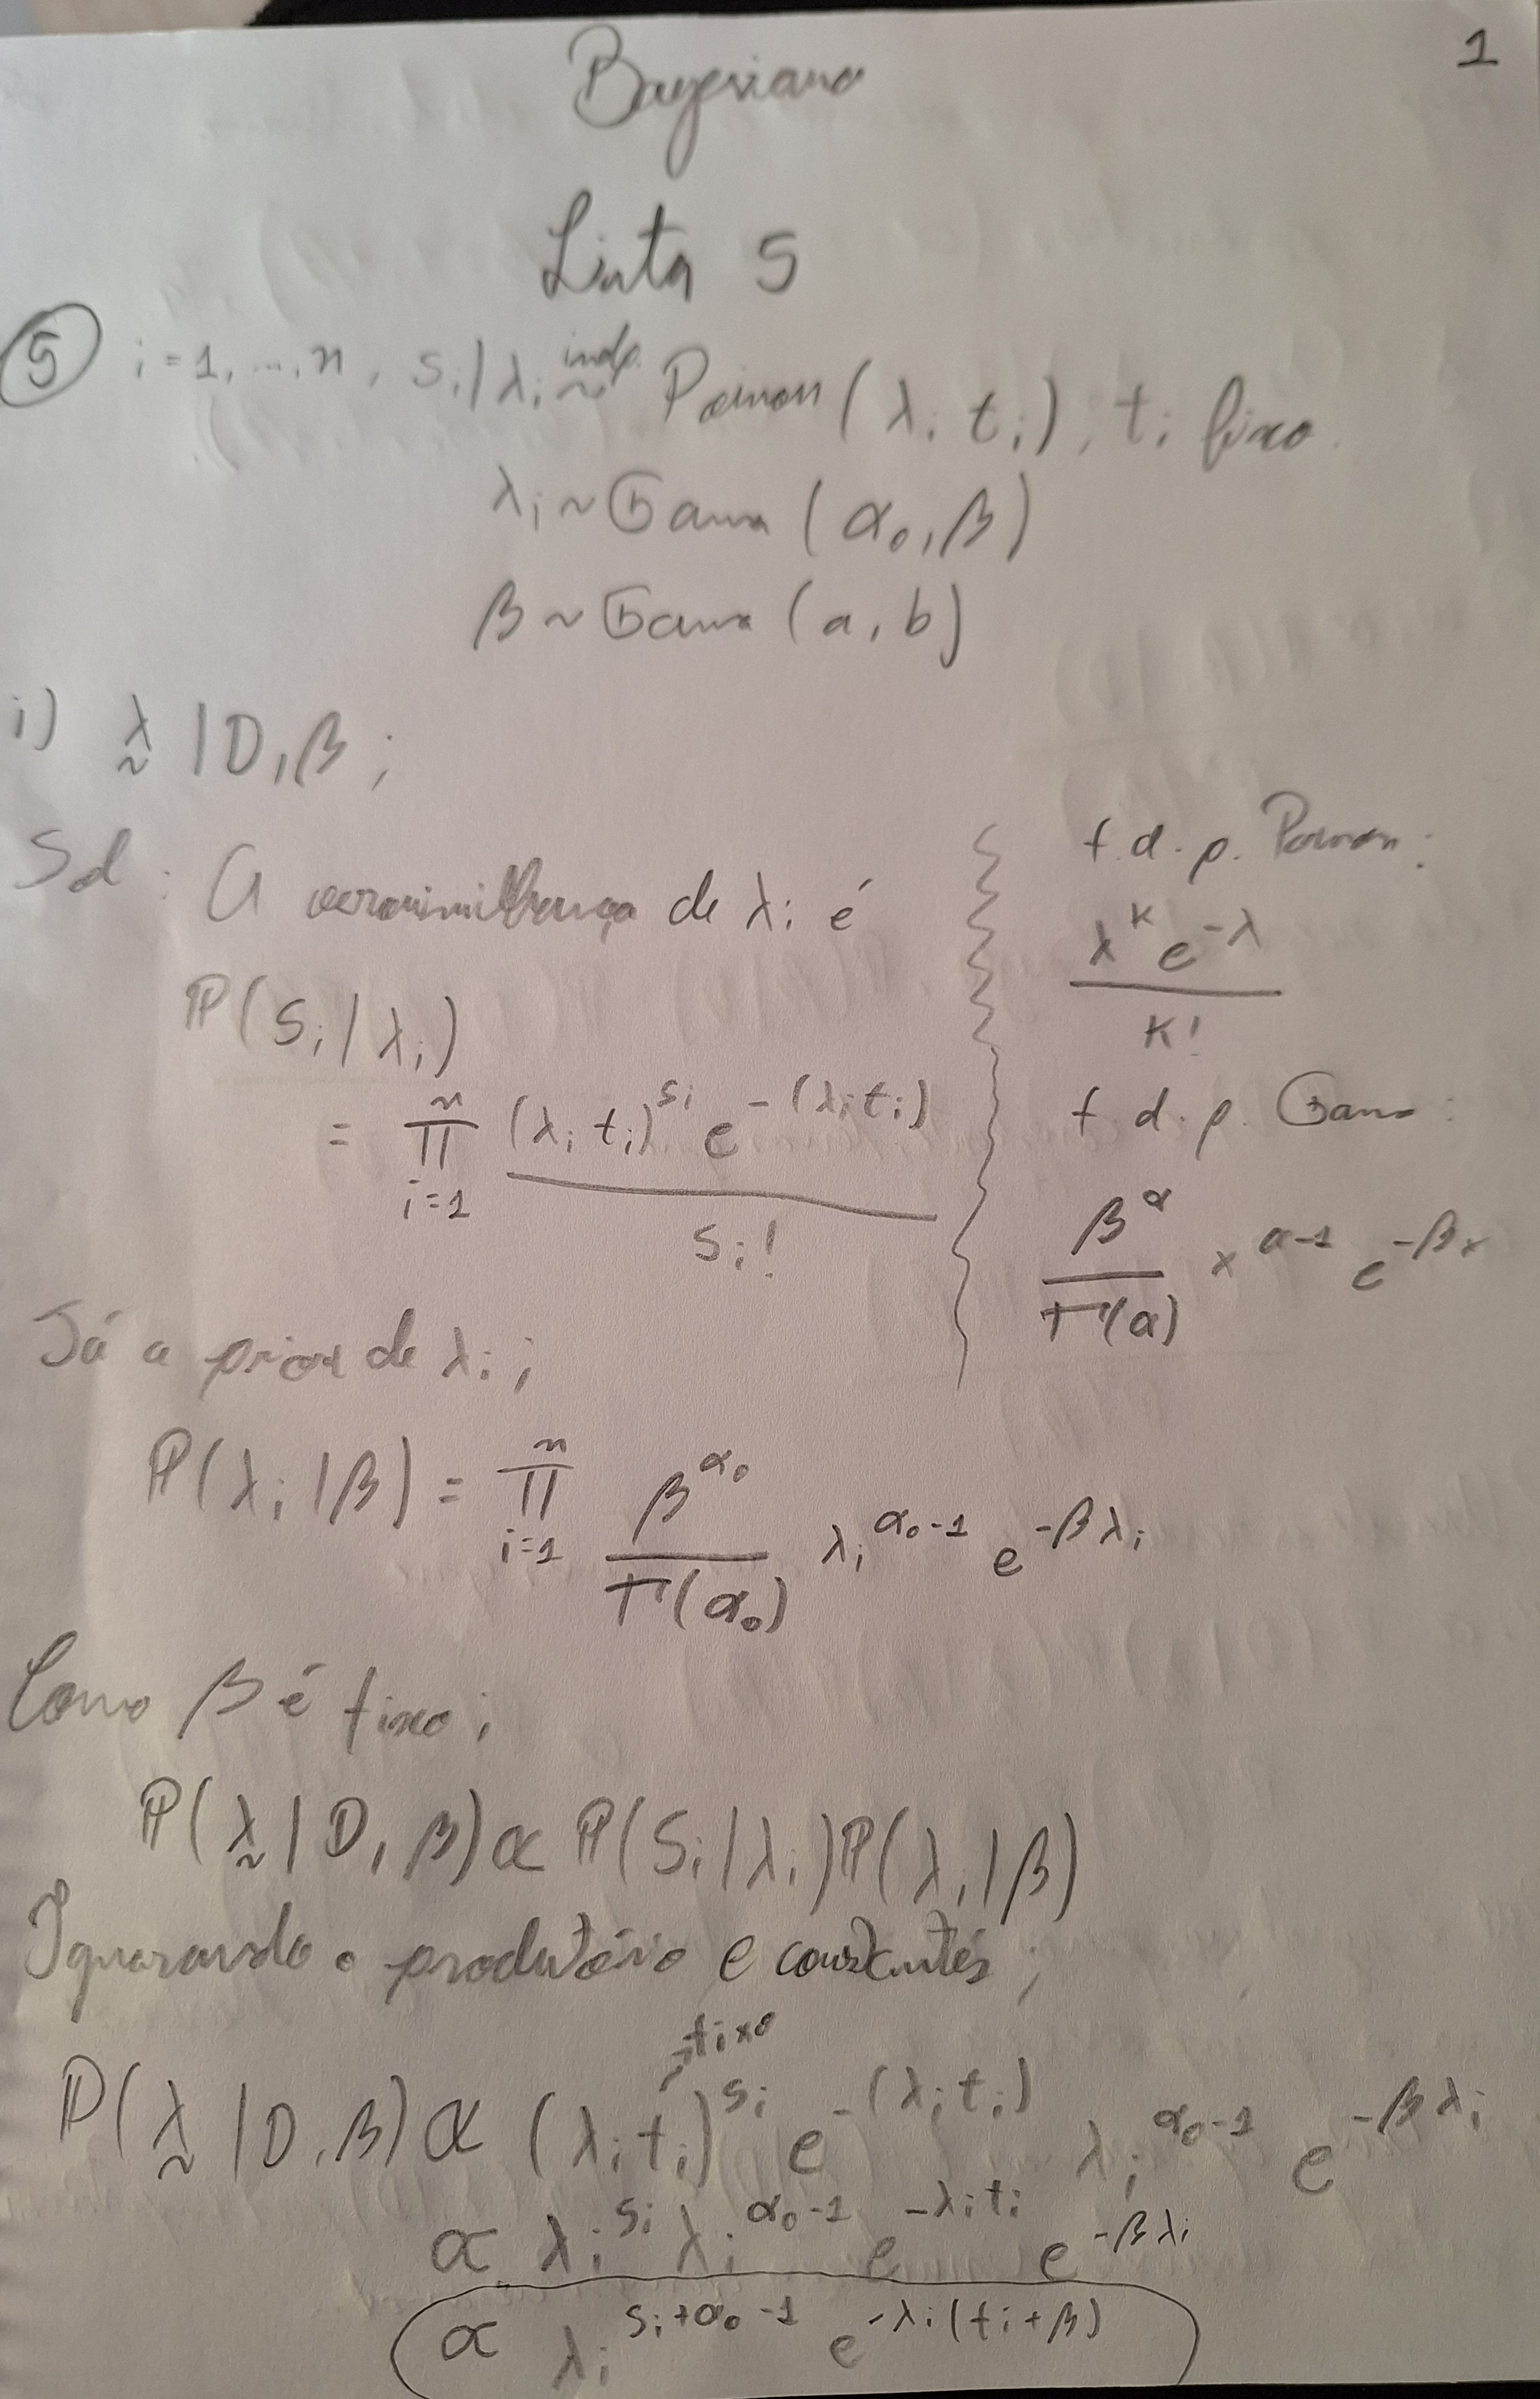 1
Bayesiano
Lista 5
⑤ i = 1, ..., n, Sᵢ | λᵢ indp. ~ Poisson (λᵢ tᵢ), tᵢ fixo.
λᵢ ~ Gama (α₀, β)
β ~ Gama (a, b)
i) λ̰ | D, β ;
Sol : A verossimilhança de λᵢ é
ℙ(Sᵢ | λᵢ)
= ∏ᵢ₌₁ⁿ (λᵢ tᵢ)^Sᵢ e^-(λᵢtᵢ) / Sᵢ!
f.d.p. Poisson :
λ^k e^-λ / k!
f.d.p. Gama :
β^α / Γ(α) x^α-1 e^-βx
Já a priori de λᵢ ;
ℙ(λᵢ | β) = ∏ᵢ₌₁ⁿ β^α₀ / Γ(α₀) λᵢ^α₀-1 e^-βλᵢ
Como β é fixo ;
ℙ(λ̰ | D, β) ∝ ℙ(Sᵢ | λᵢ) ℙ(λᵢ | β)
Ignorando o produtório e constantes ;
fixo
ℙ(λ̰ | D, β) ∝ (λᵢ tᵢ)^Sᵢ e^-(λᵢtᵢ) λᵢ^α₀-1 e^-βλᵢ
∝ λᵢ^Sᵢ λᵢ^α₀-1 e^-λᵢtᵢ e^-βλᵢ
∝ λᵢ^Sᵢ+α₀-1 e^-λᵢ(tᵢ+β)